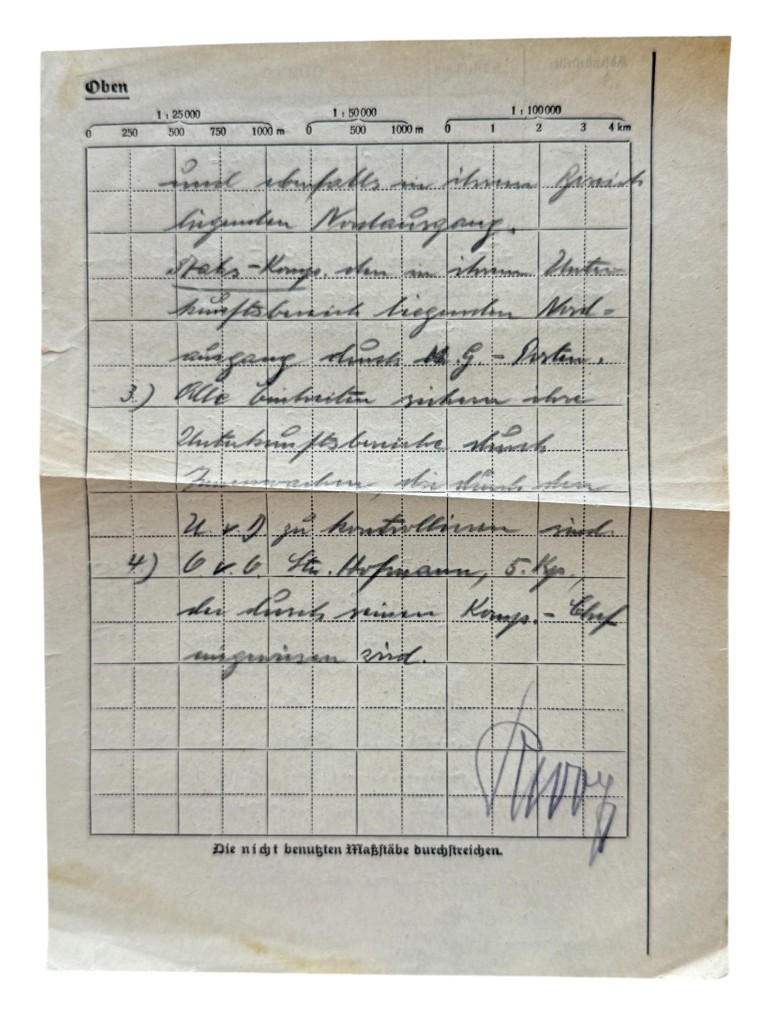 Oben
1 : 25 000 1 : 50 000 1 : 100 000
0 250 500 750 1000 m 0 500 1000 m 0 1 2 3 4 km
und ebenfalls in ihrem Bereich
liegenden Nordausgang.
Stabs-Komp. den in ihrem Unter-
kunftsbereich liegenden Nord=
ausgang durch M.G.-Posten.
3.) Alle Einheiten sichern ihre
Unterkunftsbereiche durch
Innenwachen, die durch den
U.v.D zu kontrollieren sind.
4.) O.v.O. Hofmann, 5. Kp.,
der durch seinen Komp.-Chef
eingewiesen wird.
Die nicht benutzten Maßstäbe durchstreichen.